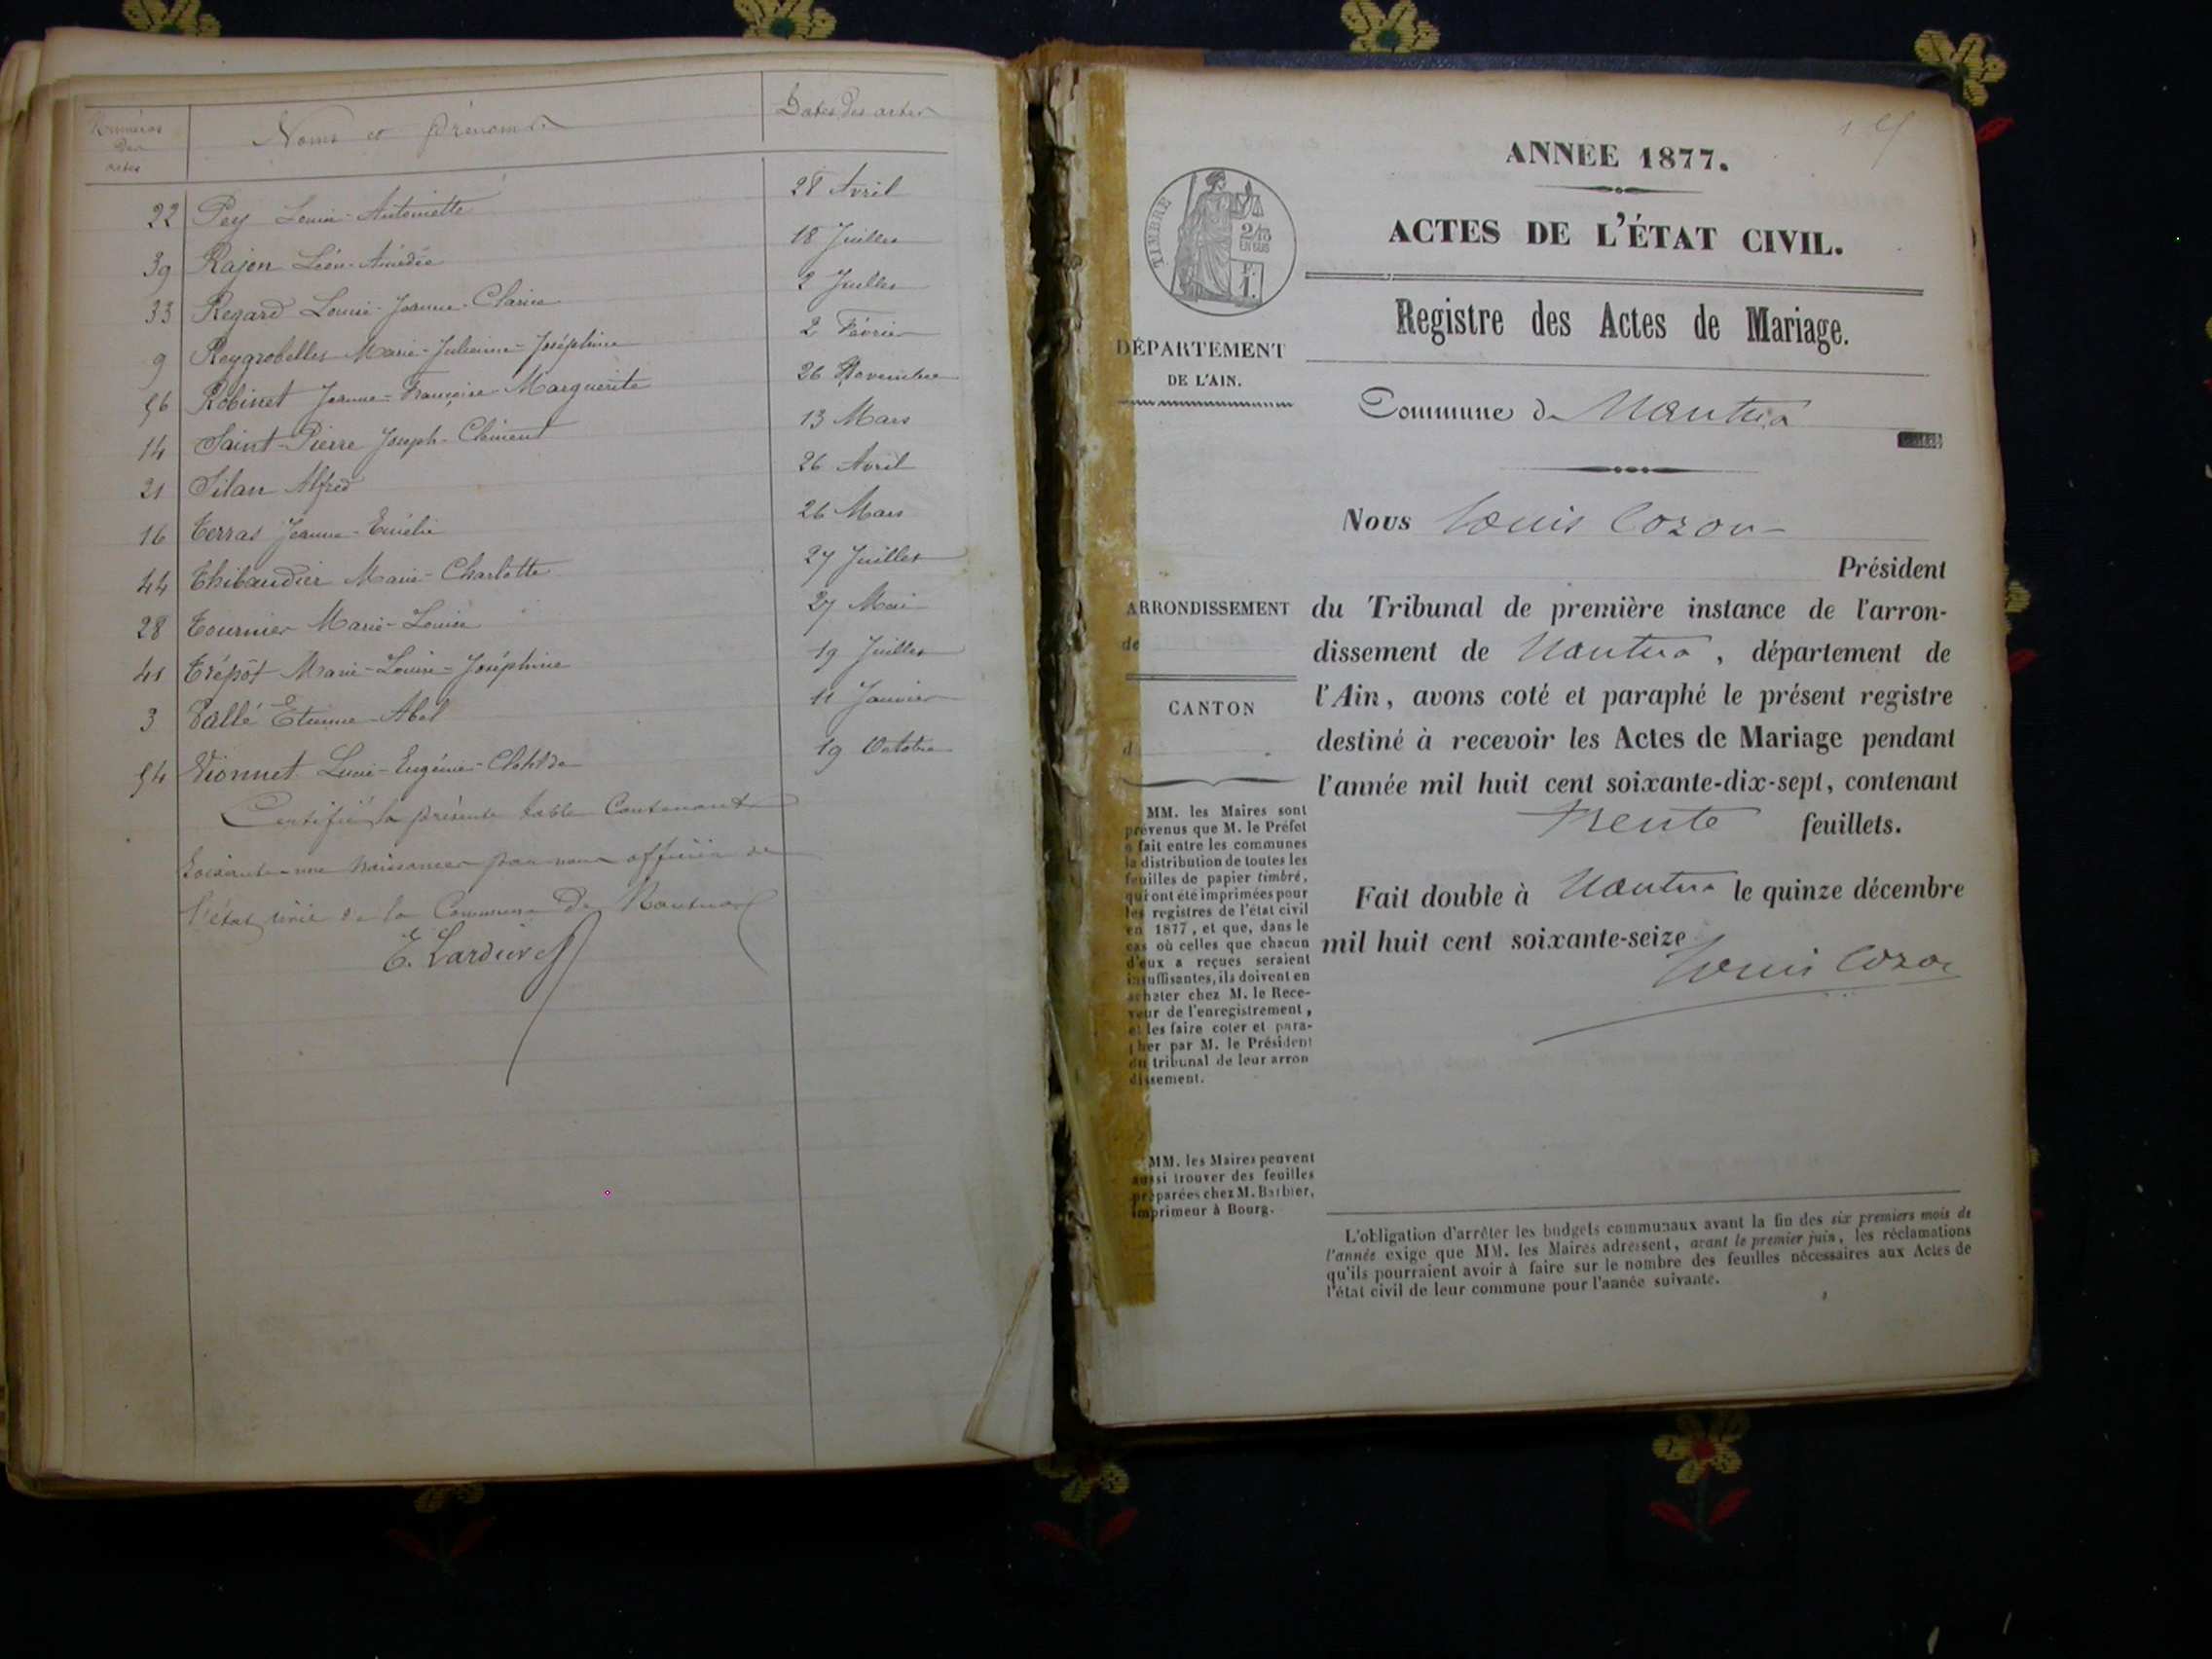 Numéros
des
actes
Noms et Prénoms
Dates des actes
22 Pey Louise-Antoinette 28 Avril
39 Rajon Léon-Amédée 18 Juillet
33 Regard Louise-Jeanne-Clarice 2 Juillet
9 Reygrobellet Marie-Julienne-Joséphine 2 Février
56 Robinet Jeanne-Françoise Marguerite 26 Novembre
14 Saint-Pierre Joseph-Clément 13 Mars
21 Silan Alfred 26 Avril
16 Terras Jeanne-Emélie 26 Mars
44 Thibaudier Marie-Charlotte 27 Juillet
28 Tournier Marie-Louise 27 Mai
41 Trépôt Marie-Louise-Joséphine 19 Juillet
3 Vallé Etienne-Abel 11 Janvier
54 Vionnet Lucie-Eugénie-Clotilde 19 Octobre
Certifié la présente table Contenant
soixante-une naissances par nous officier de
l'état civil de la Commune de Nantua
E. Lardier
ANNÉE 1877.
ACTES DE L'ÉTAT CIVIL.
TIMBRE
2/10
EN SUS
F.
1.
Registre des Actes de Mariage.
DÉPARTEMENT
DE L'AIN.
Commune de Nantua
Nous Louis Cozon
Président
ARRONDISSEMENT
de
CANTON
d
du Tribunal de première instance de l'arron-
dissement de Nantua, département de
l'Ain, avons coté et paraphé le présent registre
destiné à recevoir les Actes de Mariage pendant
l'année mil huit cent soixante-dix-sept, contenant
trente feuillets.
Fait double à Nantua le quinze décembre
mil huit cent soixante-seize
Louis Cozon
MM. les Maires sont
prévenus que M. le Préfet
a fait entre les communes
la distribution de toutes les
feuilles de papier timbré,
qui ont été imprimées pour
les registres de l'état civil
en 1877, et que, dans le
cas où celles que chacun
d'eux a reçues seraient
insuffisantes, ils doivent en
acheter chez M. le Rece-
veur de l'enregistrement,
et les faire coter et para-
pher par M. le Président
du tribunal de leur arron
dissement.
MM. les Maires peuvent
aussi trouver des feuilles
préparées chez M. Barbier,
imprimeur à Bourg.
L'obligation d'arrêter les budgets communaux avant la fin des six premiers mois de
l'année exige que MM. les Maires adressent, avant le premier juin, les réclamations
qu'ils pourraient avoir à faire sur le nombre des feuilles nécessaires aux Actes de
l'état civil de leur commune pour l'année suivante.